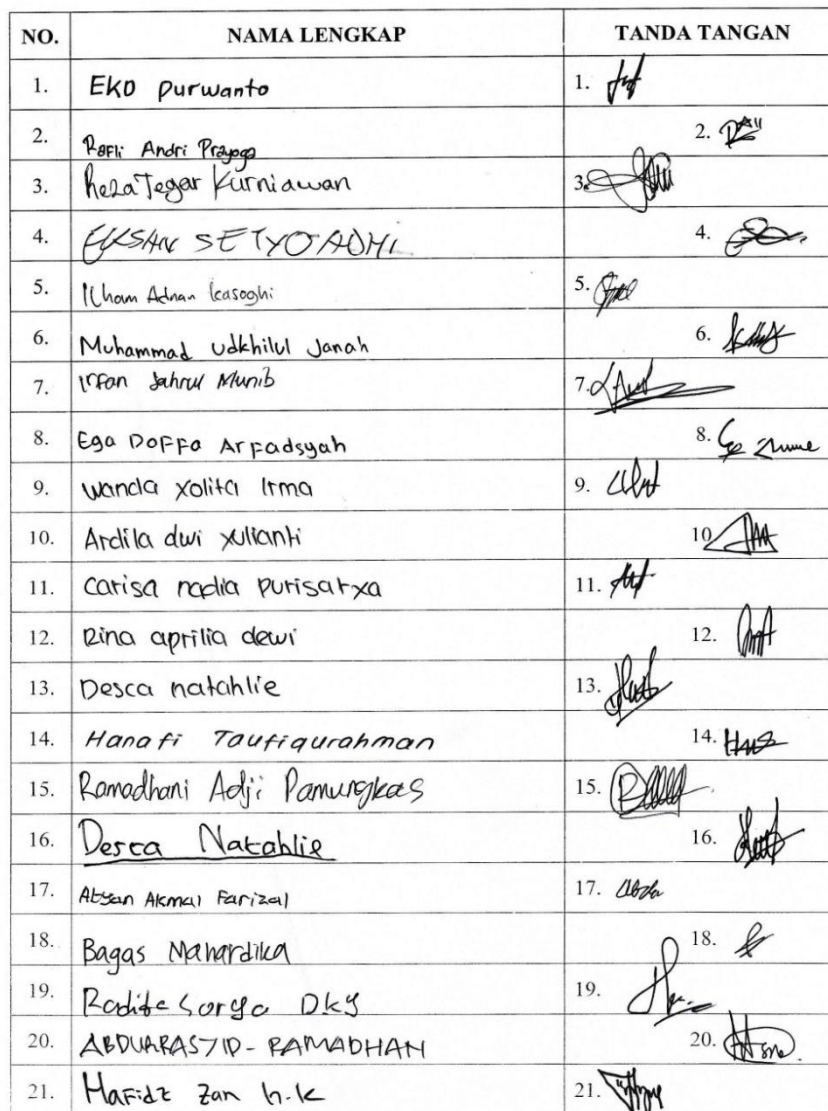 NO. NAMA LENGKAP TANDA TANGAN
1. EKO Purwanto 1.
2. Rafli Andri Prayoga 2.
3. Reza Tegar Kurniawan 3.
4. EKSAN SETYO ADHI 4.
5. Ilham Adnan Kasoghi 5.
6. Muhammad Udkhilul Janah 6.
7. Irfan Sahrul Munib 7.
8. Ega DOFFA Arfadsyah 8.
9. wanda Yolita Irma 9.
10. Ardila dwi yulianti 10.
11. Carisa nadia purisatya 11.
12. Rina aprilia dewi 12.
13. Desca natahlie 13.
14. Hanafi Taufiqurahman 14.
15. Ramadhani Adji Pamungkas 15.
16. Desca Natahlie 16.
17. Abyan Akmal Farizal 17.
18. Bagas Mahardika 18.
19. Radite Soryo DKY 19.
20. ABDURRASYID-RAMADHAN 20.
21. Hafidz Zan h.k 21.